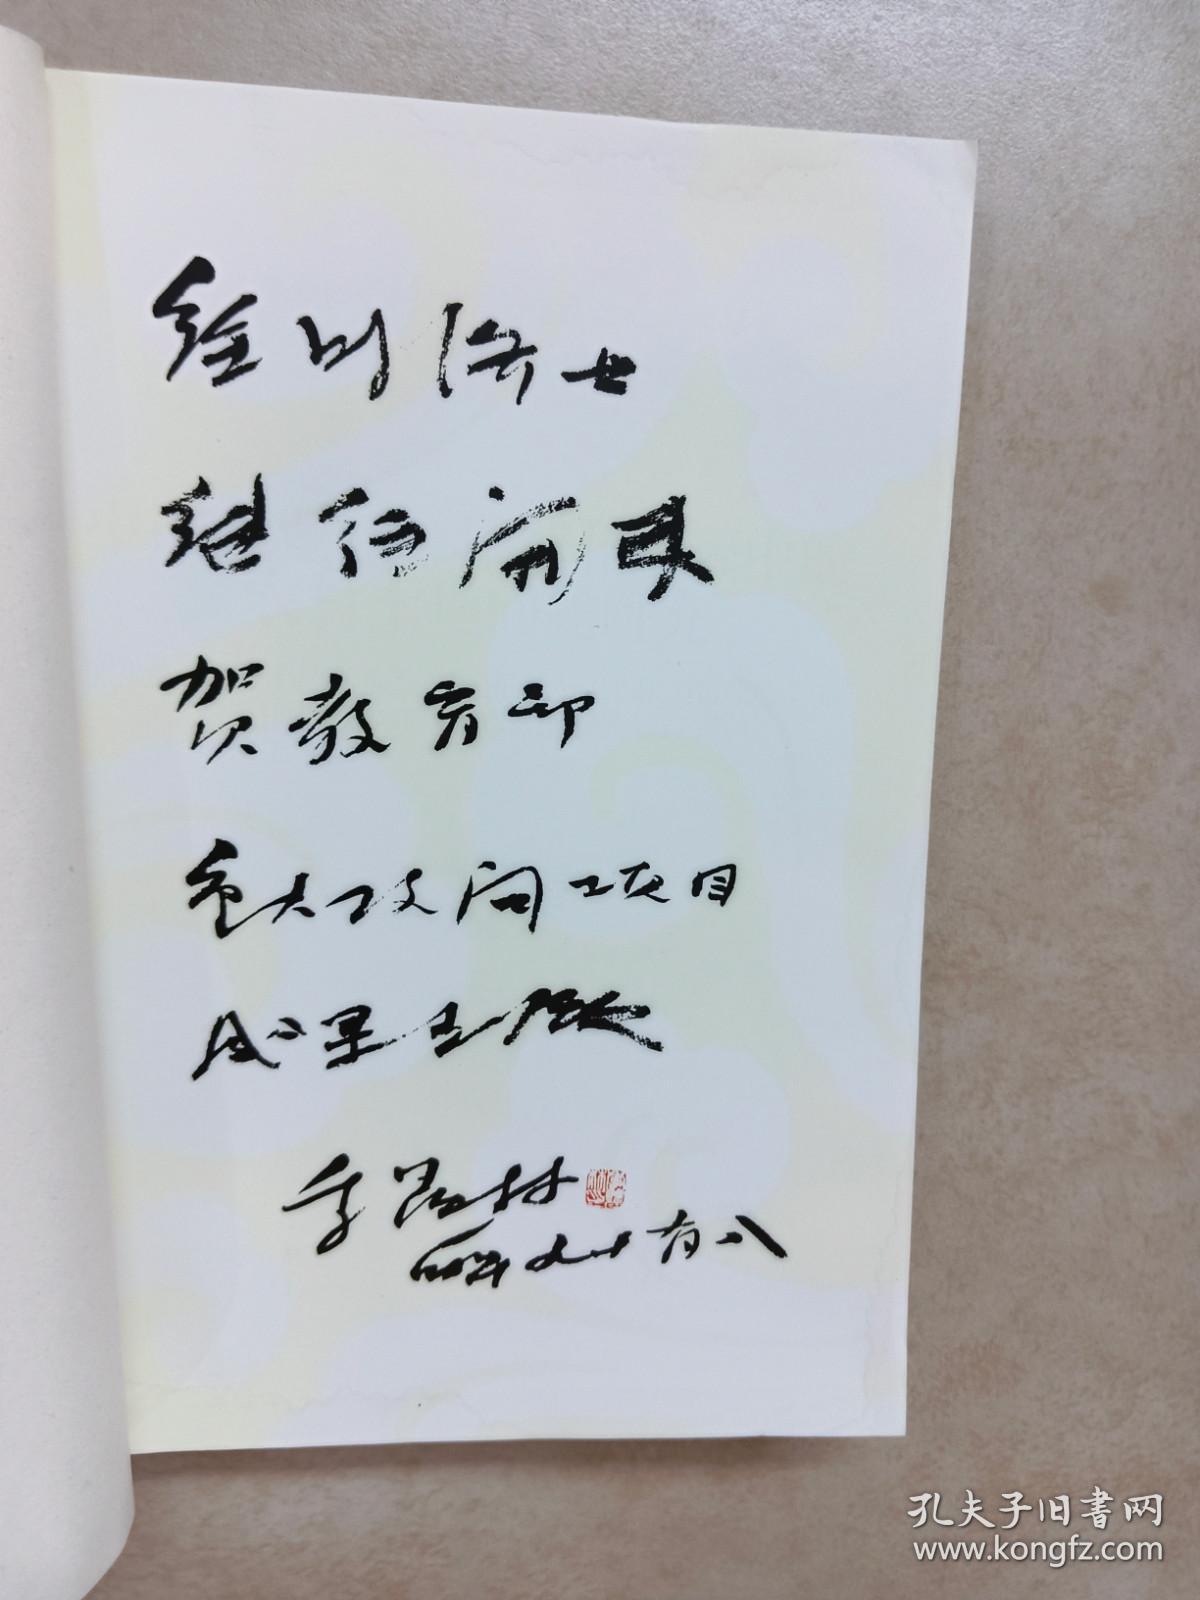 经时济世
继往开来
贺教育部
重大攻关项目
成果出版
季羡林
时年九十有八
孔夫子旧书网
www.kongfz.com